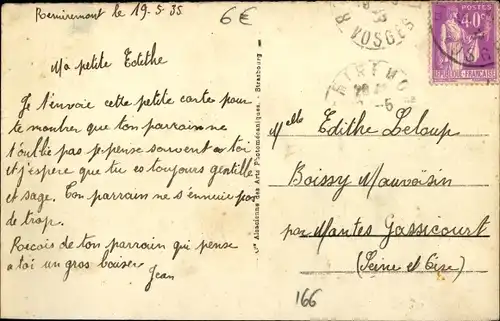 Remiremont le 19-5-35
6€
Ma petite Edithe
Je t'envoie cette petite carte pour
te montrer que ton parrain ne
t'oublie pas je pense souvent a toi
et j'espère que tu es toujours gentille
et sage. Ton parrain ne s'ennuie pas
de trop.
Recois de ton parrain qui pense
a toi un gros baiser
Jean
Cie Alsacienne des Arts Photomécaniques. - Strasbourg
VOSGES
POSTES
40c
REPUBLIQUE FRANÇAISE
Melle Edithe Leloup
Boissy Mauvoisin
par Mantes Gassicourt
(Seine et Oise)
166